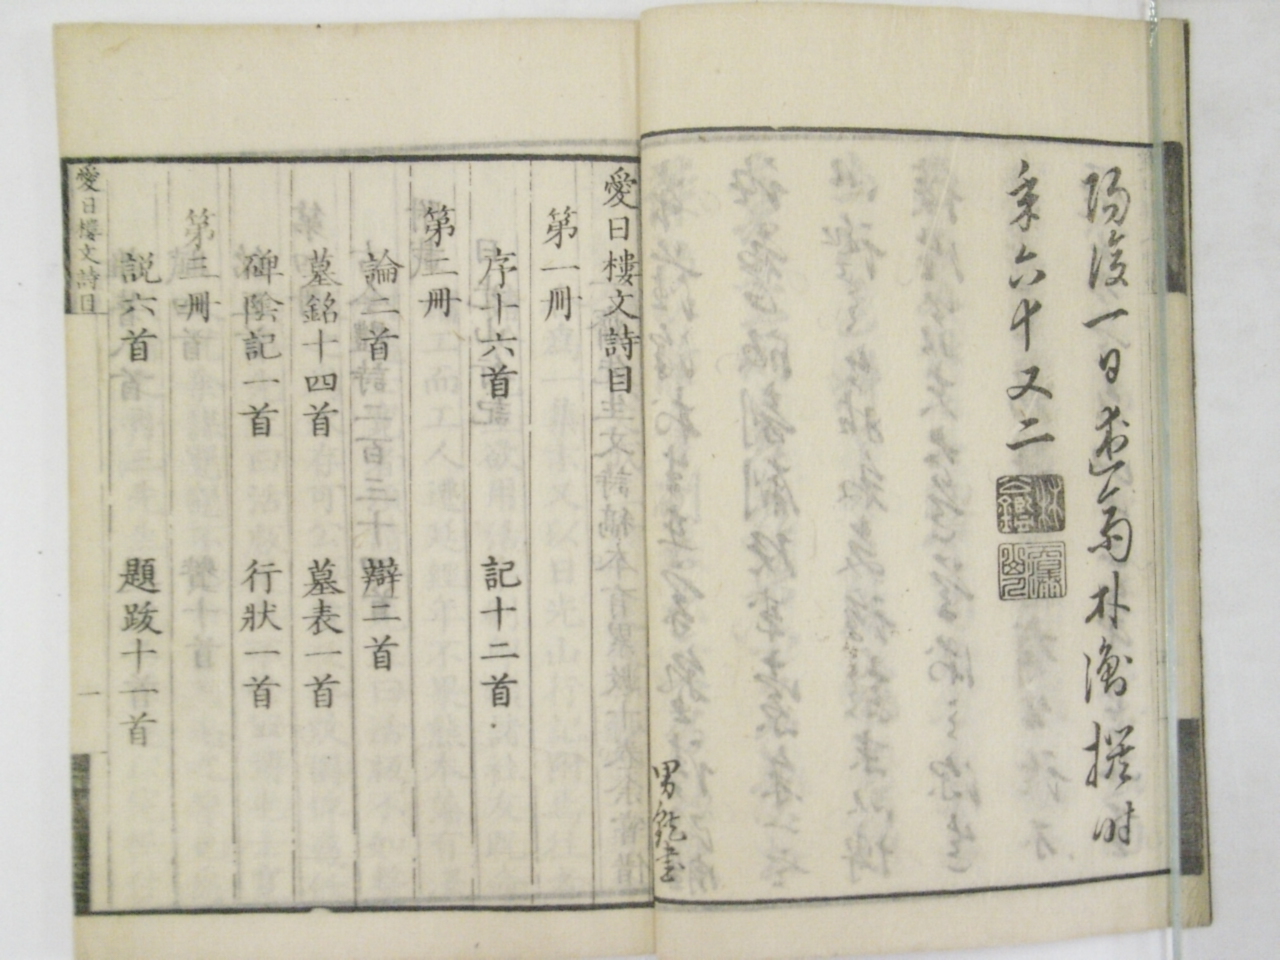 陽後一日述齋林衡撰時
年六十又二
男皝書
愛日樓文詩目
第一冊
序十六首 記十二首
第二冊
論二首 辯三首
墓銘十四首 墓表一首
碑陰記一首 行狀一首
第三冊
説六首 題跋十一首
愛日樓文詩目 一